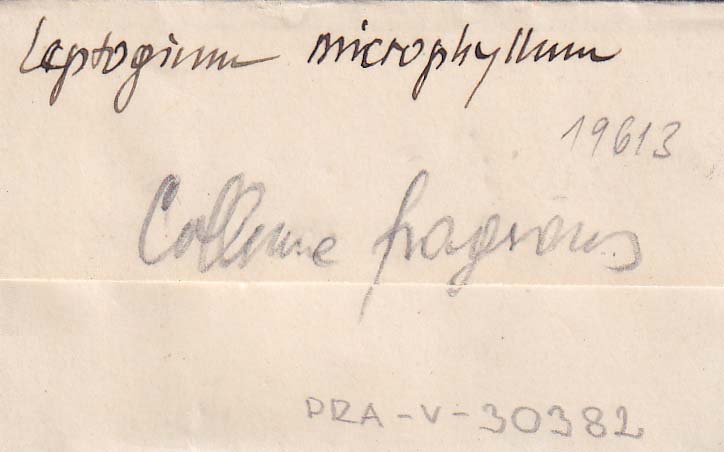 Leptogium microphyllum
19613
Collema fragrans
PRA-V-30382